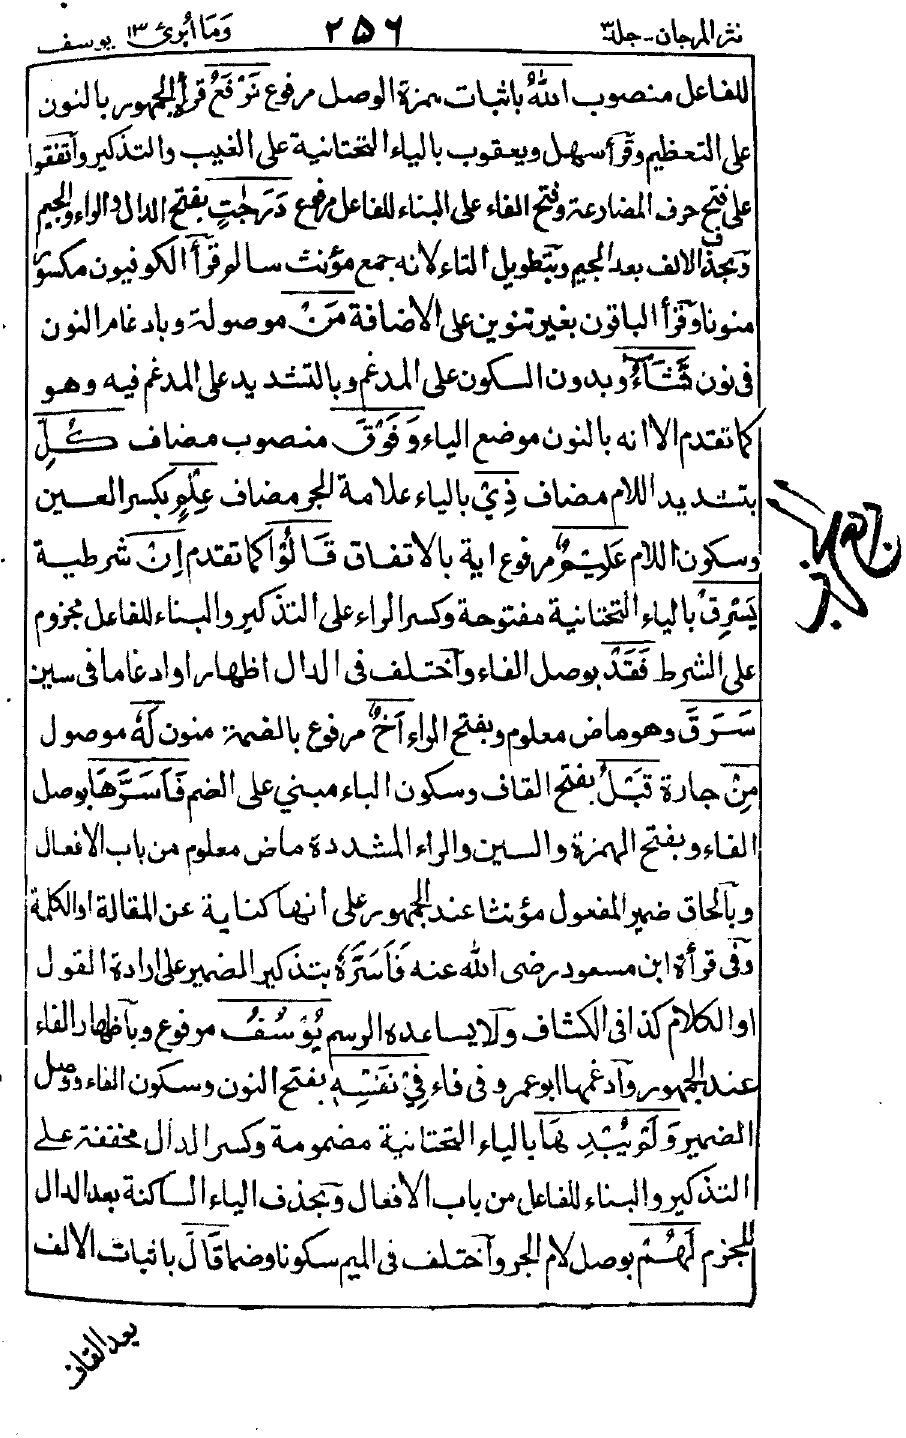 نثر المرجان - جلد ٣
٢٥٦
وَمَا أُبَرِّئُ ١٣ يوسف
للفاعل منصوب اللهُ باثبات همزة الوصل مرفوع نَرْفَعُ قرأ الجمهور بالنون
على التعظيم وقرأ سهل ويعقوب بالياء التحتانية على الغيب والتذكير واتفقوا
على فتح حرف المضارعة وفتح الفاء على البناء للفاعل مرفوع دَرَجٰتٍ بفتح الدال والراء والجيم
وبحذف الالف بعد الجيم وبتطويل التاء لانه جمع مؤنث سالم قرأ الكوفيون مكسورا
منونا وقرأ الباقون بغير تنوين على الاضافة مَنْ موصولة وبادغام النون
فى نون نَّشَآءُ وبدون السكون على المدغم وبالتشديد على المدغم فيه وهو
كما تقدم الا انه بالنون موضع الياء وَفَوْقَ منصوب مضاف كُلِّ
بتشديد اللام مضاف ذِيْ بالياء علامة الجر مضاف عِلْمٍ بكسر العين
وسكون اللام عَلِيْمٌ مرفوع اية بالاتفاق قَالُوْٓا كما تقدم اِنْ شرطية
يَسْرِقْ بالياء التحتانية مفتوحة وكسر الراء على التذكير والبناء للفاعل مجزوم
على الشرط فَقَدْ بوصل الفاء واختلف فى الدال اظهارا وادغاما فى سين
سَرَقَ وهو ماض معلوم وبفتح الراء اَخٌ مرفوع بالضمة منون لَهٗ موصول
مِنْ جارة قَبْلُ بفتح القاف وسكون الباء مبني على الضم فَاَسَرَّهَا بوصل
الفاء وبفتح الهمزة والسين والراء المشددة ماض معلوم من باب الافعال
وبالحاق ضمير المفعول مؤنثا عند الجمهور على أنها كناية عن المقالة او الكلمة
وفى قرأة ابن مسعود رضى الله عنه فَاَسَرَّهٗ بتذكير الضمير على ارادة القول
او الكلام كذا فى الكشاف ولا يساعده الرسم يُوْسُفُ مرفوع وباظهار الفاء
عند الجمهور وادغمها ابو عمرو فى فاء فِيْ نَفْسِهٖ بفتح النون وسكون الفاء ووصل
الضمير وَلَمْ يُبْدِهَا بالياء التحتانية مضمومة وكسر الدال مخففة على
التذكير والبناء للفاعل من باب الافعال وبحذف الياء الساكنة بعد الدال
للجزم لَهُمْ بوصل لام الجر واختلف فى الميم سكونا وضما قَالَ باثبات الالف
بعد القاف